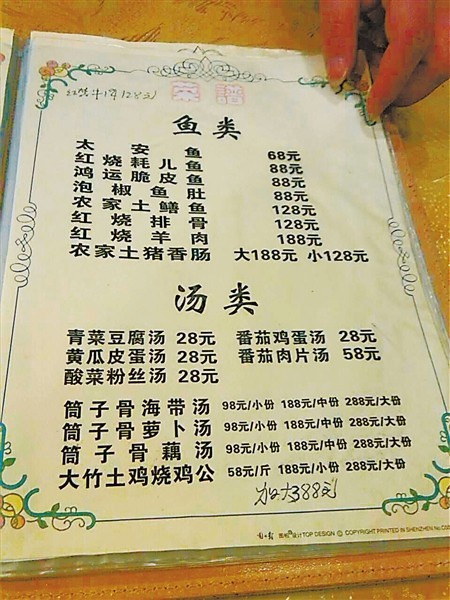 红烧牛肉128元
菜谱
鱼类
太安鱼 68元
红烧耗儿鱼 88元
鸿运脆皮鱼 88元
泡椒鱼肚 88元
农家土鳝鱼 128元
红烧排骨 128元
红烧羊肉 188元
农家土猪香肠 大188元 小128元
汤类
青菜豆腐汤 28元 番茄鸡蛋汤 28元
黄瓜皮蛋汤 28元 番茄肉片汤 58元
酸菜粉丝汤 28元
筒子骨海带汤 98元/小份 188元/中份 288元/大份
筒子骨萝卜汤 98元/小份 188元/中份 288元/大份
筒子骨藕汤 98元/小份 188元/中份 288元/大份
大竹土鸡烧鸡公 58元/斤 188元/小份 288元/大份
加大388元
设计TOP DESIGN © COPYRIGHT PRINTED IN SHENZHEN